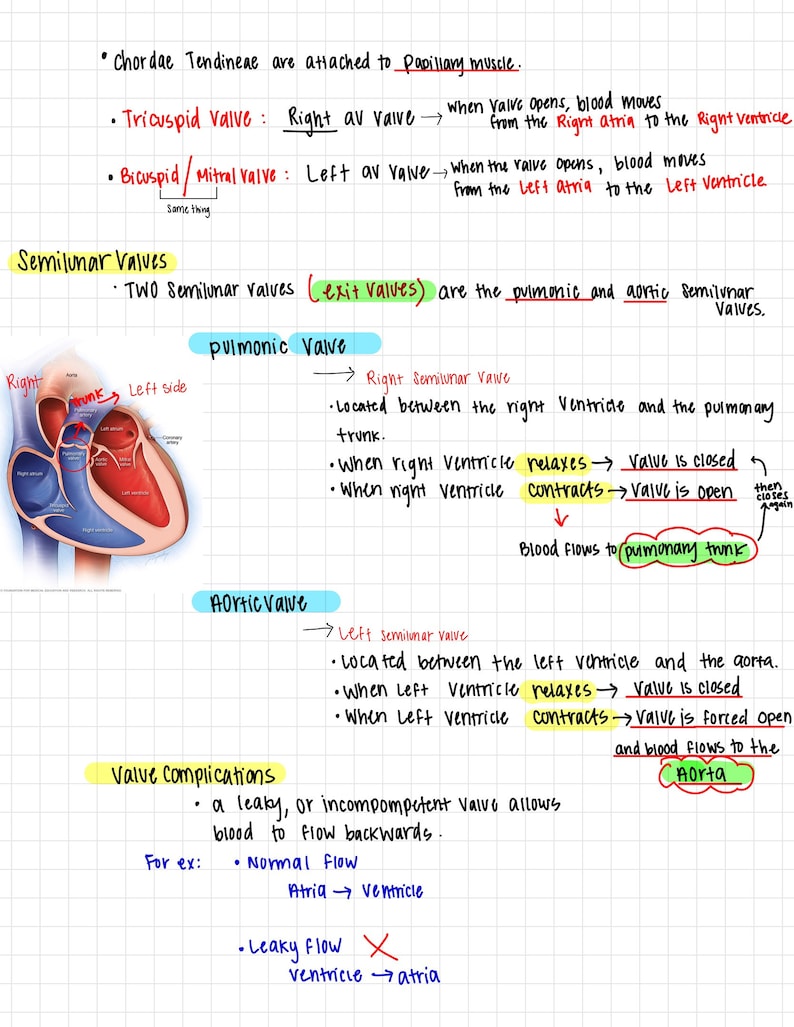 • Chordae Tendineae are attached to Papillary muscle.
• Tricuspid Valve : Right av valve → when valve opens, blood moves
from the Right atria to the Right ventricle
• Bicuspid / Mitral valve : Left av valve → when the valve opens, blood moves
from the Left atria to the Left ventricle.
same thing
Semilunar Valves
• TWO Semilunar valves (exit valves) are the pulmonic and aortic Semilunar
Valves.
pulmonic Valve
→ Right Semilunar Valve
• Located between the right ventricle and the pulmonary
trunk.
• When right ventricle relaxes → valve is closed
• When right ventricle contracts → valve is open
then
closes
again
Blood flows to pulmonary trunk
Right
Aorta
trunk
Left side
Pulmonary
artery
Left atrium
Coronary
artery
Pulmonary
valve
Aortic
valve
Mitral
valve
Right atrium
Left ventricle
Tricuspid
valve
Right ventricle
FOUNDATION FOR MEDICAL EDUCATION AND RESEARCH. ALL RIGHTS RESERVED.
Aortic Valve
→ Left semilunar valve
• Located between the left ventricle and the aorta.
• When Left ventricle relaxes → valve is closed
• When Left ventricle contracts → valve is forced open
and blood flows to the
Aorta
Valve Complications
• a leaky, or incompompetent valve allows
blood to flow backwards.
For ex: • Normal flow
Atria → ventricle
• Leaky flow X
ventricle → atria